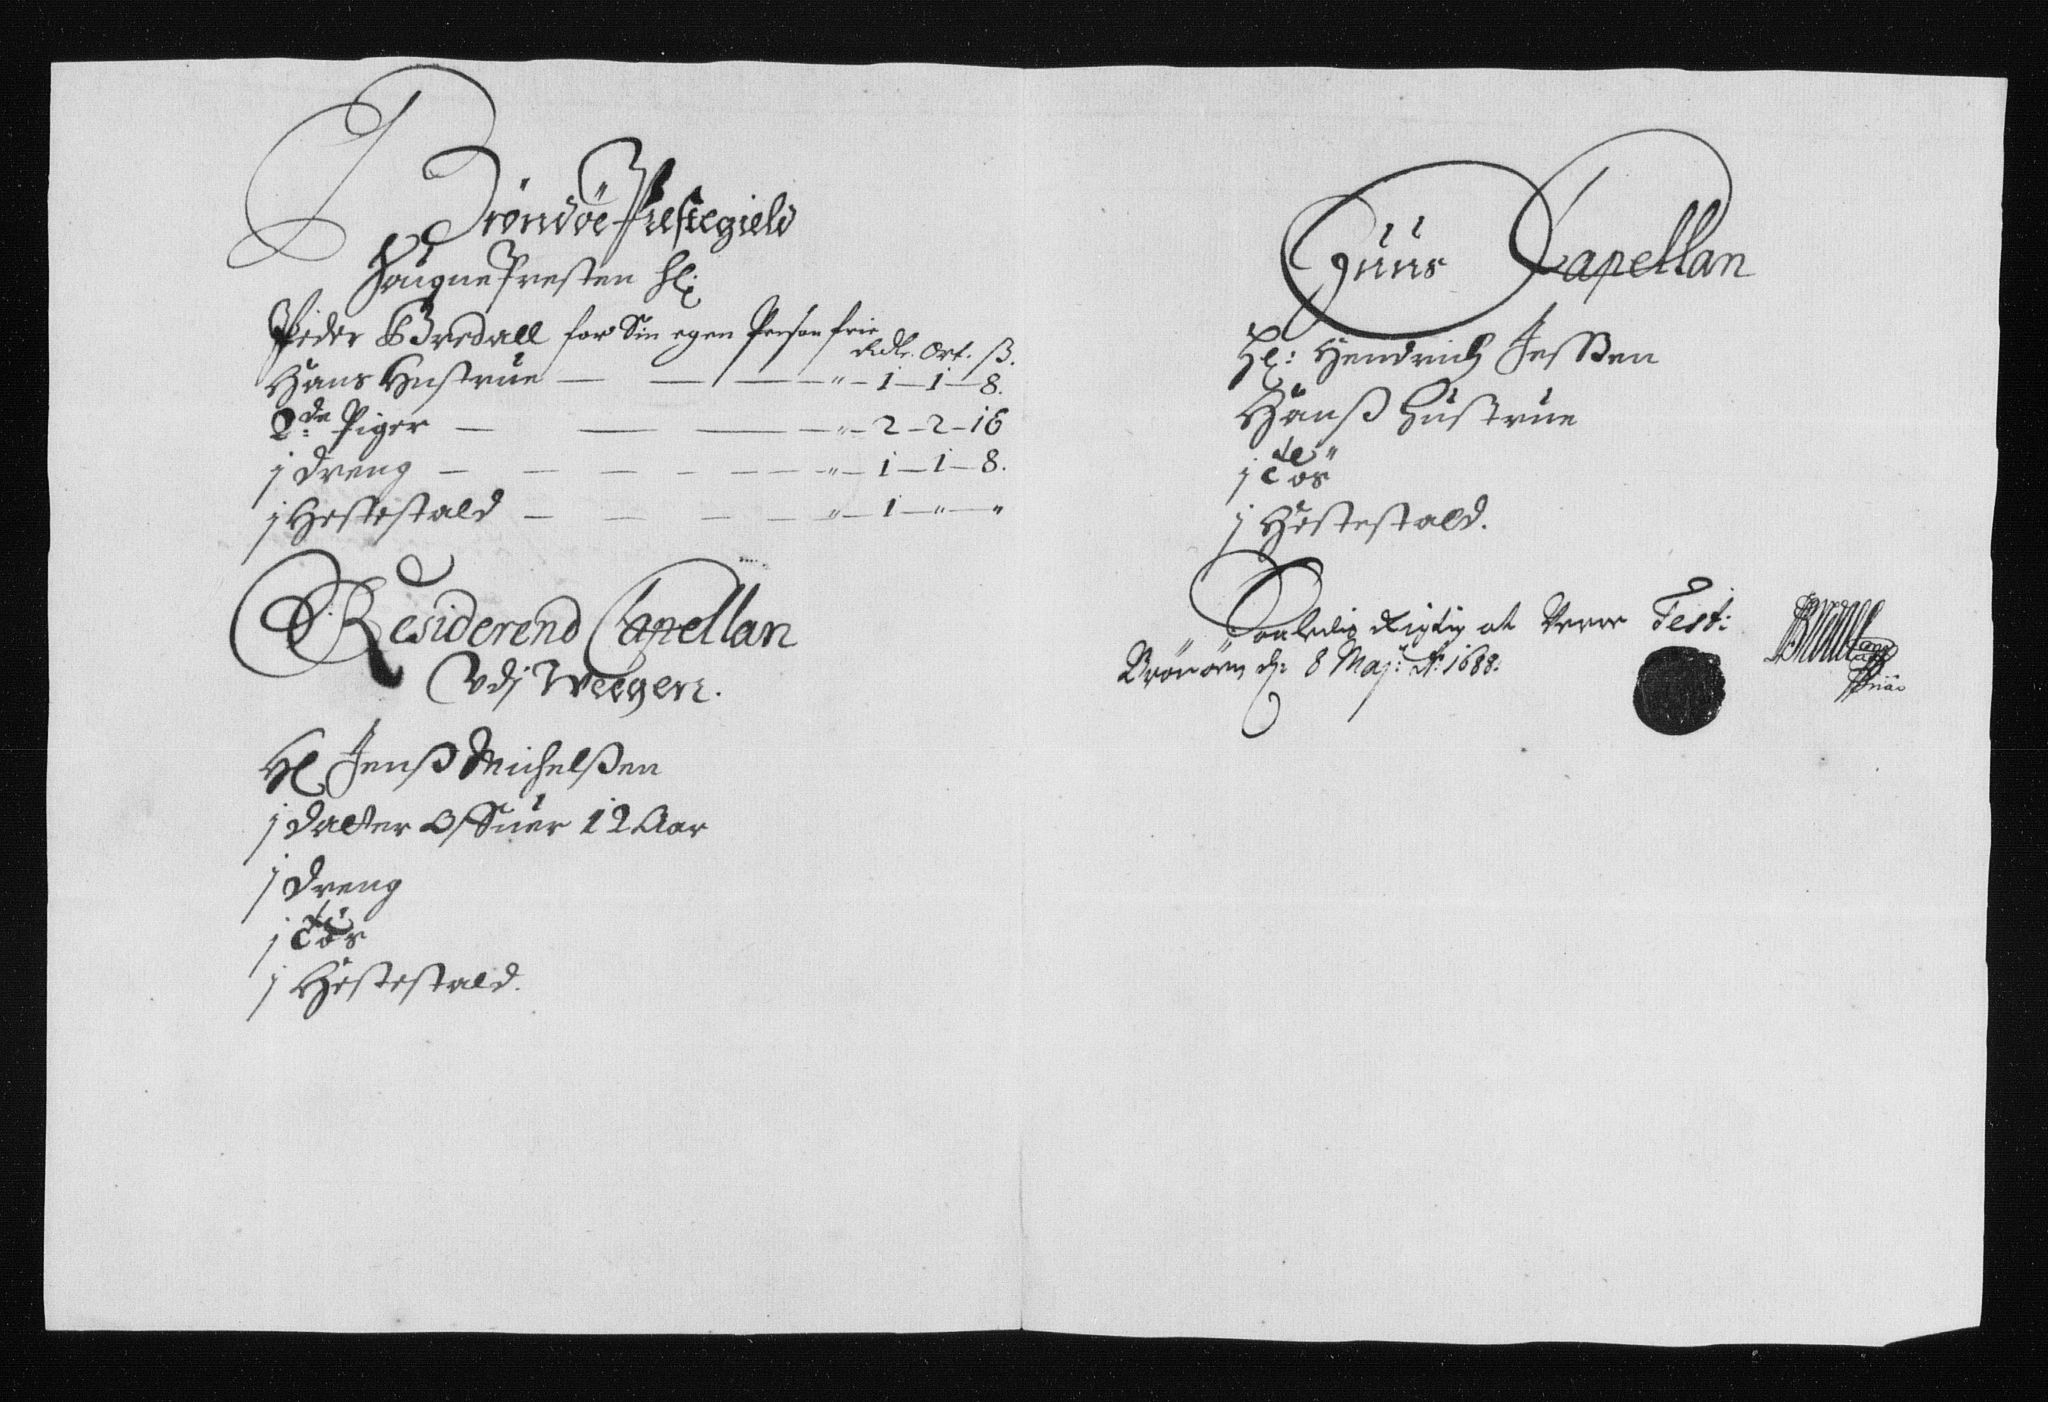 Brönöe Præstegield
Sougne Presten Hl:
Peder Bredall for Sin egen Person frie
Rdlr. Ort. ß.
Hans Hustrue — — — " — 1 — 1 — 8.
2de Piger — — — " — 2 — 2 — 16
j Dreng — — — — — " — 1 — 1 — 8.
j Hestestald — — — — " — 1 — " — "
Residerend Capellan
Vdj Weegen.
Hl Jenß Michelßen
j Datter Offuer 12 Aar
j Dreng
j Tös
j Hestestald.
Huus Capellan
Hl: Hendrich Jesßen
Hanß Hustrue
j Tös
j Hestestald.
Saaledis Rigtig at Verre Test:
Brönöen d: 8 Maj: A: 1688.